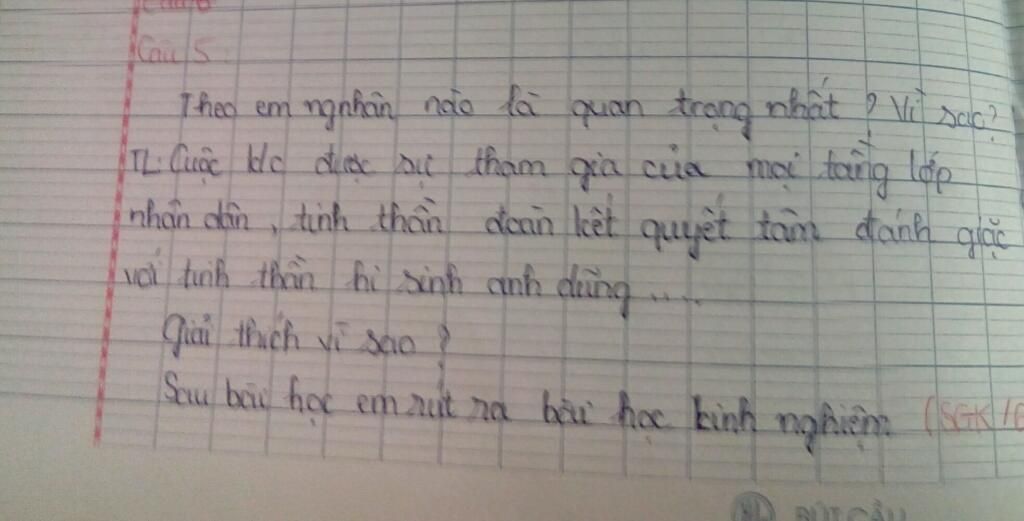 Câu 5.
Theo em ngnhân nào là quan trọng nhất? Vì sao?
TL: Cuộc k/c được sự tham gia của mọi tầng lớp
nhân dân, tinh thần đoàn kết quyết tâm đánh giặc
với tinh thần hi sinh anh dũng ....
Giải thích vì sao?
Sau bài học em rút ra bài học kinh nghiệm (SGK/
BÚT CẦU